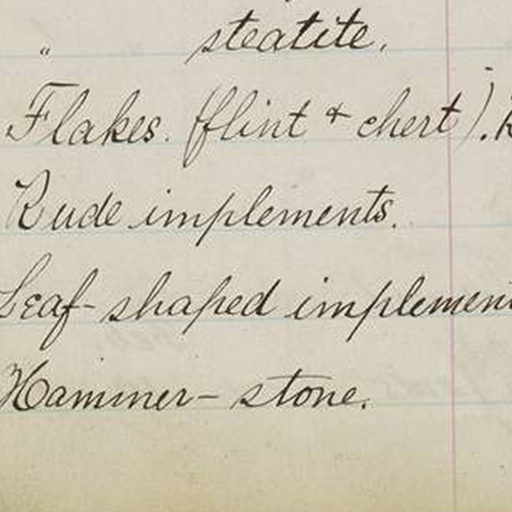 " steatite.
Flakes. (flint + chert).
Rude implements.
Leaf-shaped implement
Hammer-stone.